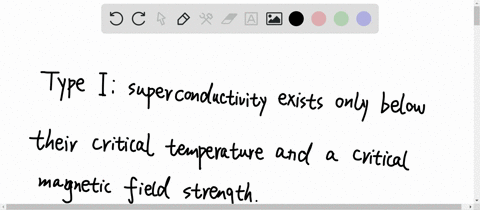 Type I: superconductivity exists only below
their critical temperature and a critical
magnetic field strength.